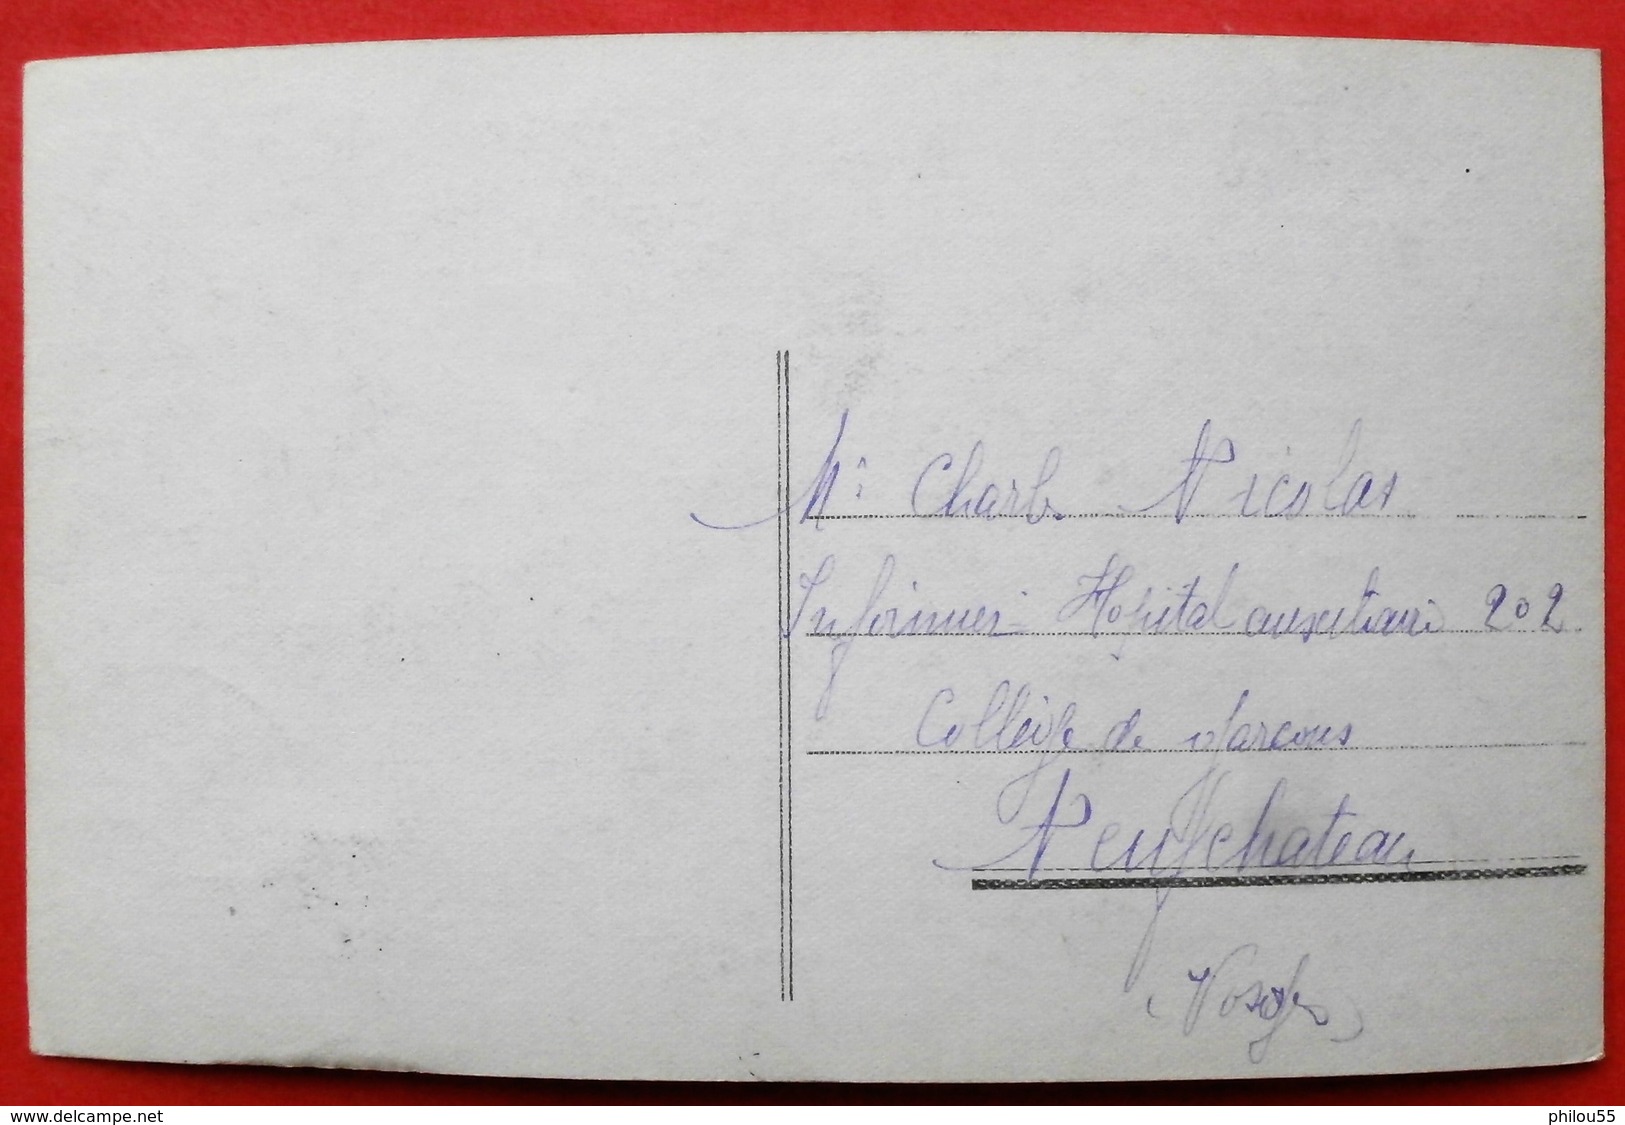 Mr Charles Nicolas
Infirmier Hopital auxiliaire 202
Collège de Garcons
Neufchateau
(Vosges)
www.delcampe.net
philou55